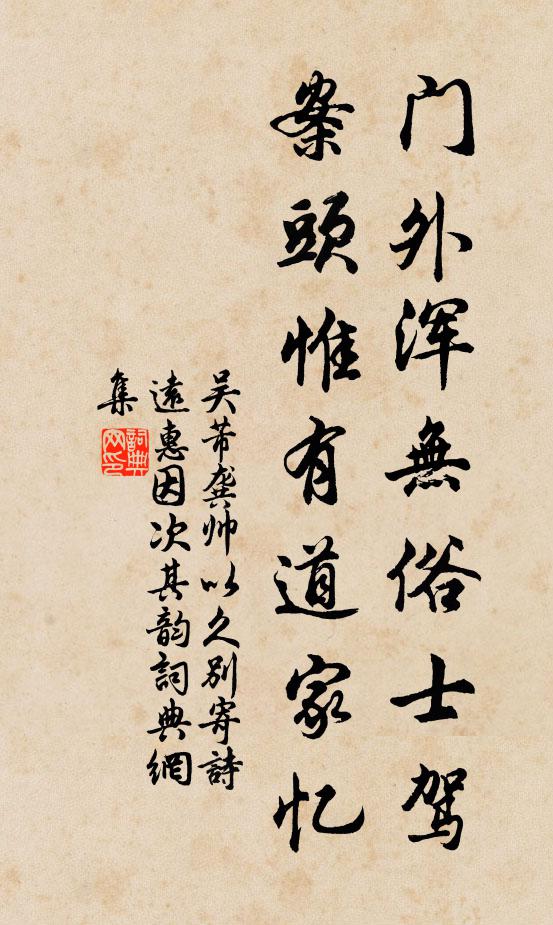 门外浑無俗士驾
案頭惟有道家忆
吴芾龚帅以久别寄詩
遠惠因次其韵詞典網
集
詞典
网印